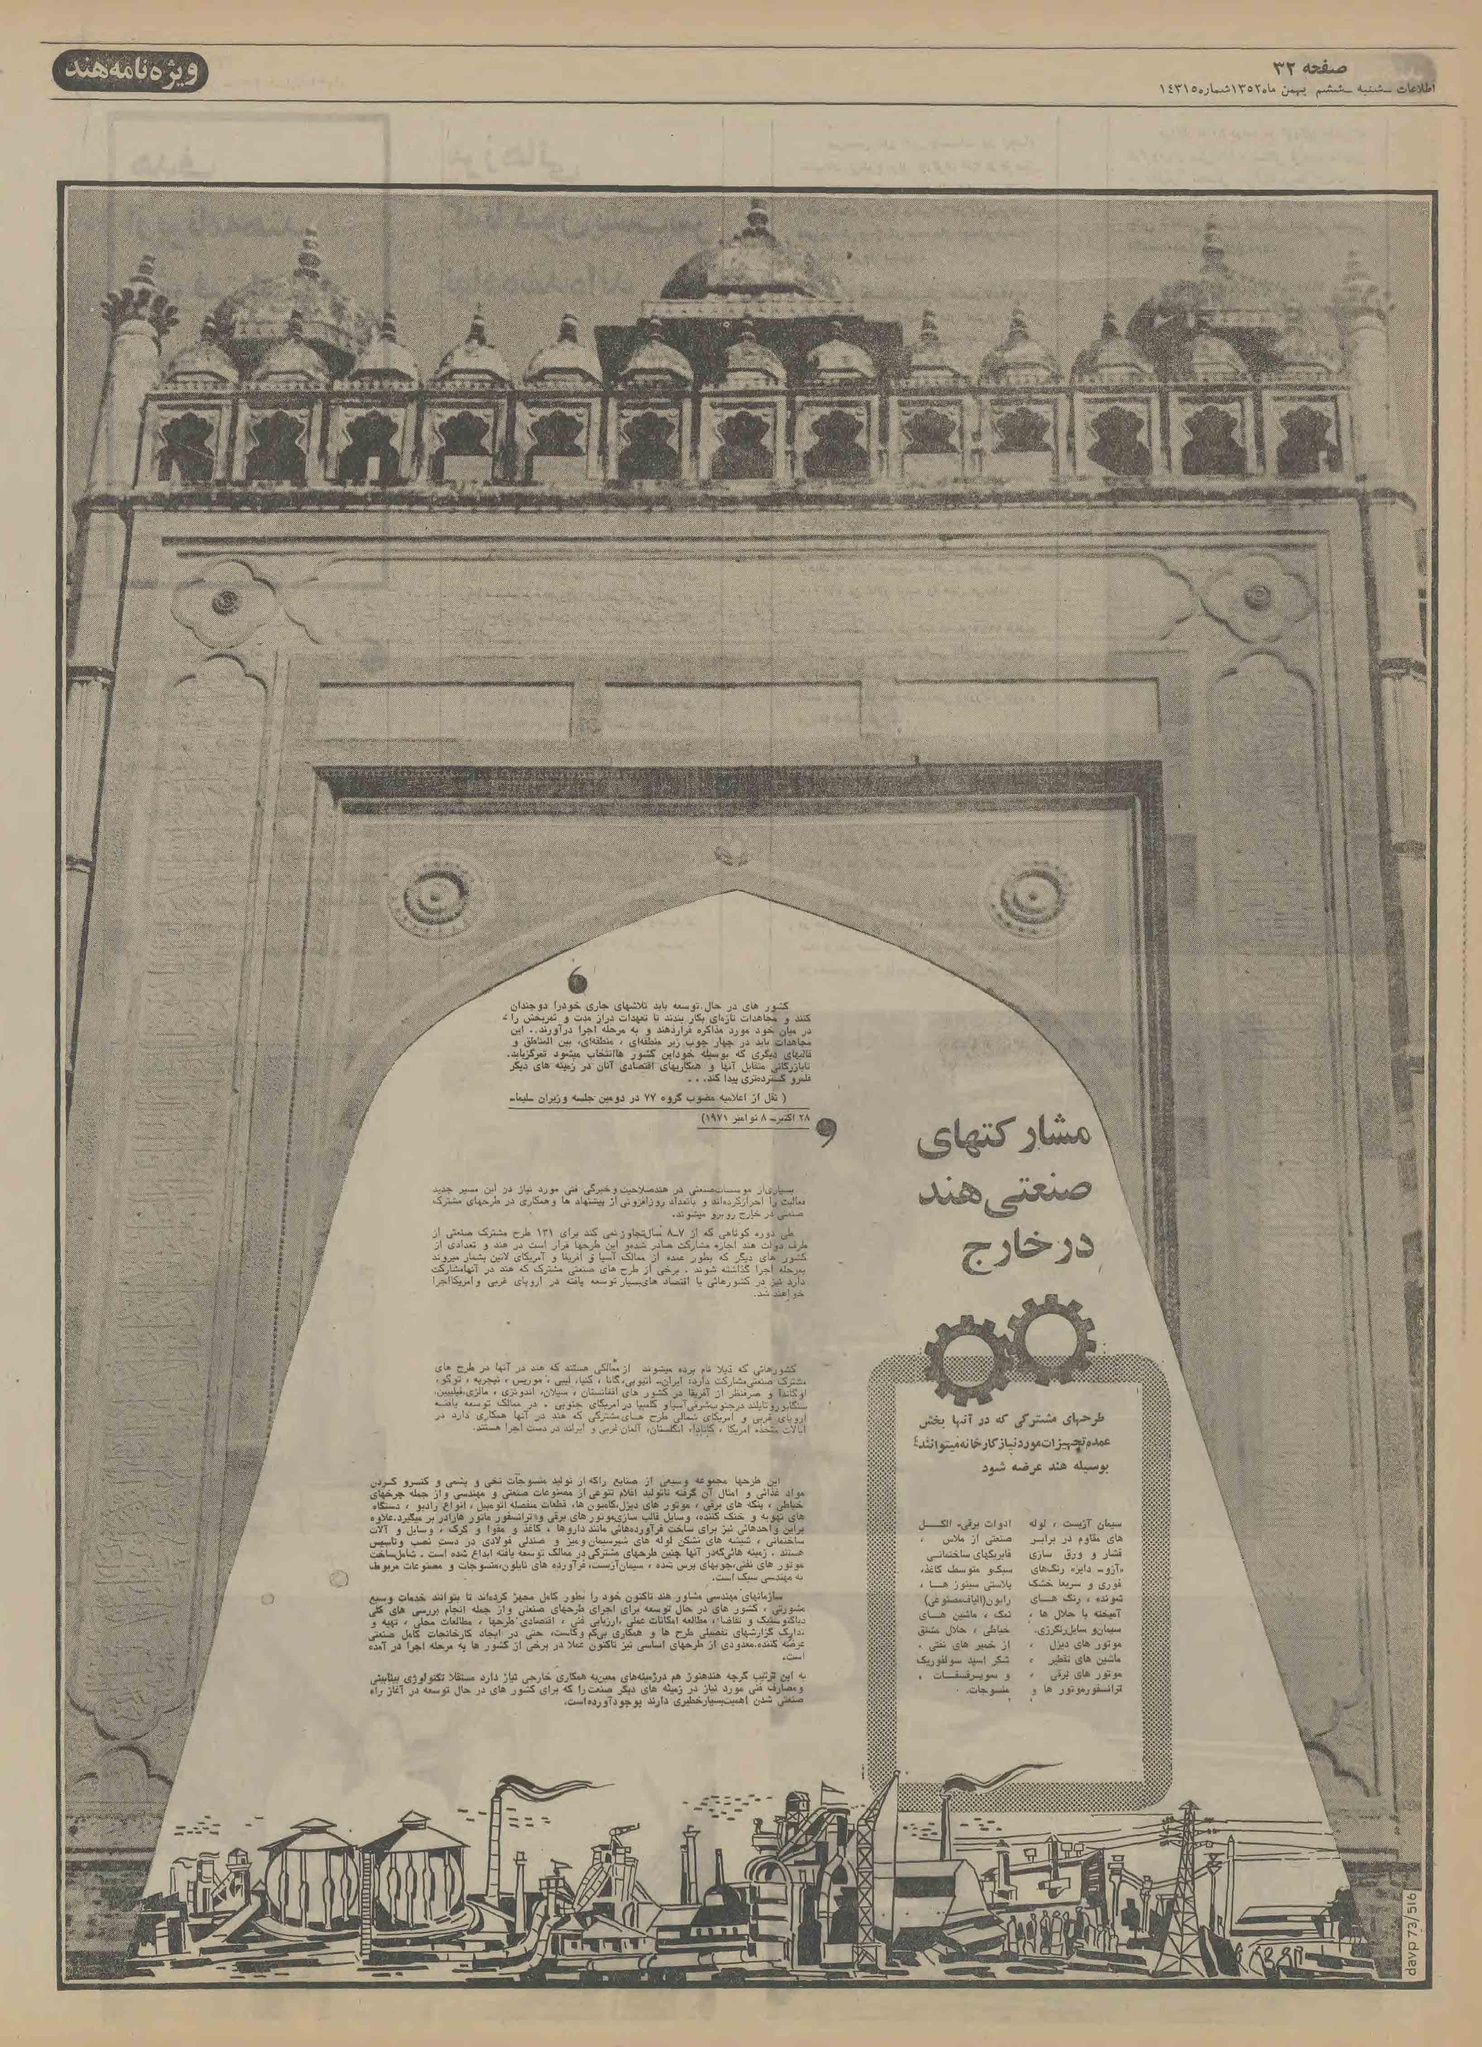 صفحه ۳۲
اطلاعات ـ شنبه ـ ششم بهمن ماه ۱۳۵۲ شماره ۱۴۳۱۵
ویژه‌نامه هند
کشور های در حال توسعه باید تلاشهای جاری خودرا دوچندان
کنند و مجاهدات تازه‌ای بکار بندند تا تعهدات دراز مدت و ثمربخش را
در میان خود مورد مذاکره قراردهند و به مرحله اجرا درآورند.. این
مجاهدات باید در چهار چوب زیر منطقه‌ای ، منطقه‌ای، بین المناطق و
قالبهای دیگری که بوسیله خوداین کشور هاانتخاب میشود تمرکزیابد.
تابازرگانی متقابل آنها و همکاریهای اقتصادی آنان در زمینه های دیگر
قلمرو گسترده‌تری پیدا کند...
( نقل از اعلامیه مصوب گروه ۷۷ در دومین جلسه وزیران ـ لیما ـ
۲۸ اکتبر ـ ۸ نوامبر ۱۹۷۱)
مشارکتهای
صنعتی هند
در خارج
بسیاری‌از موسسات‌صنعتی در هندصلاحیت و خبرگی فنی مورد نیاز در این مسیر جدید
فعالیت را احرازکرده‌اند و باتعداد روزافزونی از پیشنهاد ها وهمکاری در طرحهای مشترک
صنعتی در خارج روبرو میشوند.
طی دوره کوتاهی که از ۷ـ۸ سال‌تجاوز نمی کند برای ۱۳۱ طرح مشترک صنعتی از
طرف دولت هند اجازه مشارکت صادر شده‌و این طرحها قرار است در هند و تعدادی از
کشور های دیگر که بطور عمده از ممالک آسیا و افریقا و آمریکای لاتین بشمار میروند
بمرحله اجرا گذاشته شوند . برخی از طرح های صنعتی مشترک که هند در آنهامشارکت
دارد نیز در کشورهائی با اقتصاد های‌بسیار توسعه یافته در اروپای غربی وامریکااجرا
خواهند شد.
کشورهائی که ذیلا نام برده میشوند از ممالکی هستند که هند در آنها در طرح های
مشترک صنعتی‌مشارکت دارد: ایران ـ اتیوپی، گانا ، کنیا، لیبی ، موریس ، نیجریه ، توگو،
اوگاندا و صرفنظر از آفریقا در کشور های افغانستان ، سیلان، اندونزی ، مالزی، فیلیپین،
سنگاپور و تایلند درجنوب‌شرقی‌آسیا و کلمبیا در امریکای جنوبی . در ممالک توسعه یافته
اروپای غربی و امریکای شمالی طرح هـای‌مشترکی که هند در آنها همکاری دارد در
ایالات متحده امریکا ، کانادا، انگلستان، آلمان غربی و ایرلند در دست اجرا هستند.
این طرحها مجموعه وسیعی از صنایع راکه از تولید منسوجات نخی و پشمی و کنسرو کردن
مواد غذائی و امثال آن گرفته تاتولید اقلام متنوعی از مصنوعات صنعتی و مهندسی و از جمله چرخهای
خیاطی ، پنکه های برقی ، موتور های دیزل، کامیون ها، قطعات منفصله اتومبیل ، انواع رادیو ، دستگاه
های تهویه و خنک کننده، وسایل قالب سازی‌موتور های برقی و ترانسفور ماتور هارادر بر میگیرد.علاوه
براین واحدهائی نیز برای ساخت فرآورده‌هائی مانند داروها ، کاغذ و مقوا و کرک ، وسایل و آلات
ساختمانی ، شیشه های نشکن لوله های شیرسیمان‌ومیز و صندلی فولادی در دست نصب وتاسیس
هستند . زمینه هائی‌که‌در آنها چنین طرحهای مشترکی در ممالک توسعه یافته ابداع شده است . شامل‌ساخت
موتور های نفتی، چوبهای پرس شده ، سیمان‌آزبست، فرآورده های نایلون، منسوجات و مصنوعات مربوط
به مهندسی سبک است.
سازمانهای مهندسی مشاور هند تاکنون خود را بطور کامل مجهز کرده‌اند تا بتوانند خدمات وسیع
مشورتی ، کشور های در حال توسعه برای اجرای طرحهای صنعتی و از جمله انجام بررسی های کلی
دیاگنوستیک و تقاضا، مطالعه امکانات عملی ، ارزیابی فنی ، اقتصادی طرحها ، مطالعات محلی ، تهیه و
تدارک گزارشهای تفصیلی طرح ها و همکاری بی‌کم وکاست، حتی در ایجاد کارخانجات کامل صنعتی
عرضه کنند.معدودی از طرحهای اساسی نیز تاکنون عملا در برخی از کشور ها به مرحله اجرا در آمده
است.
به این ترتیب گرچه هندهنوز هم درزمینه‌های معین‌به همکاری خارجی نیاز دارد مستقلا تکنولوژی
ومصارف فنی مورد نیاز در زمینه های دیگر صنعت‌را که برای کشور های در حال توسعه در آغاز راه
صنعتی شدن اهمیت‌بسیارخطیری دارند بوجود آورده‌است.
طرحهای مشترکی که در آنها بخش
عمده‌تجهیزات‌موردنیاز کارخانه‌میتوانند
بوسیله هند عرضه شود
سیمان آزبست ، لوله
های مقاوم در برابر
فشار و ورق سازی
«آزو ـ دایز» رنگ‌های
فوری و سریعا خشک
شونده ، رنگ هـای
آمیخته با حلال ها ،
سیمان‌و سایل‌رنگرزی.
موتور های دیزل ،
ماشین های تقطیر ،
موتور های برقی ،
ترانسفورموتور ها و
ادوات برقی، الکـل
صنعتی از ملاس ،
فابریکهای ساختمانی
سبک‌و متوسط کاغذ،
پلاستی سیتوز هـا ،
رایون (الیاف‌مصنوعی)
نمک ، ماشین هـای
خیاطی ، حلال مشتق
از خمیر های نفتی ،
شکر اسید سولفوریک
و سوپرفسفات ،
منسوجات.
davp 73/516